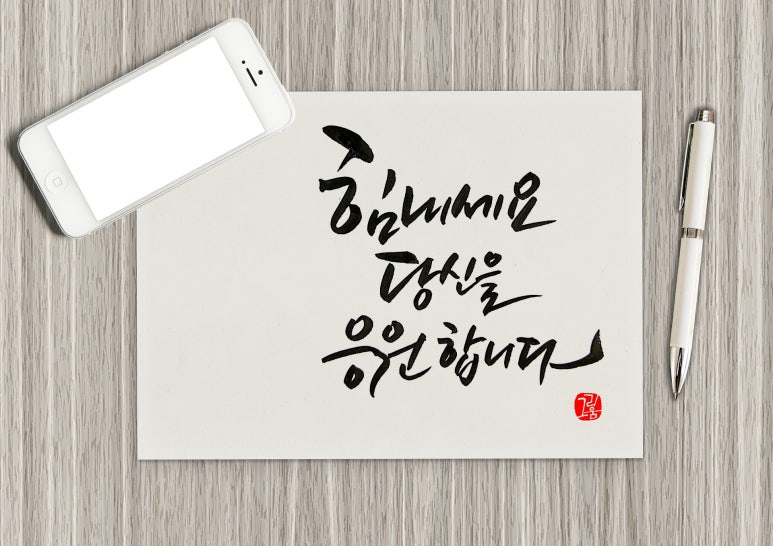 힘내세요
당신을
응원합니다